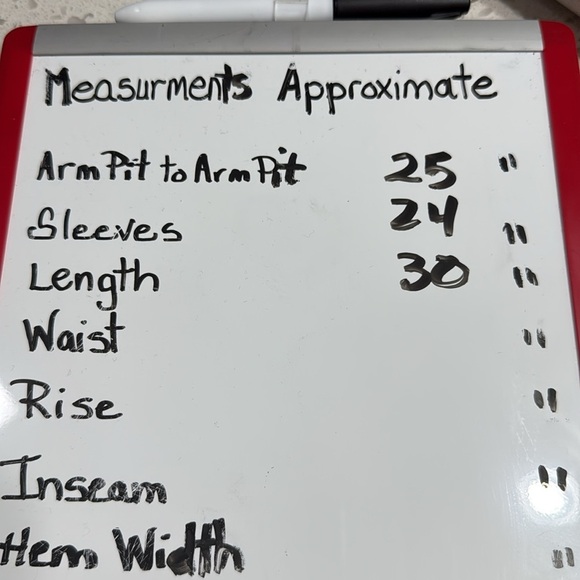 Measurments Approximate
Arm Pit to Arm Pit 25 "
Sleeves 24 "
Length 30 "
Waist "
Rise "
Inseam "
Hem Width "